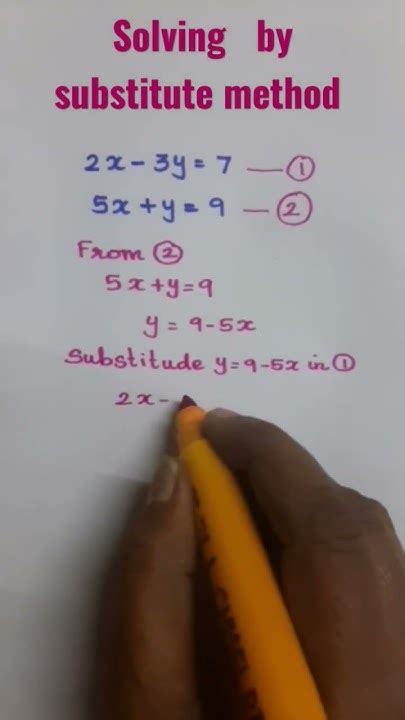 Solving by
substitute method
2x - 3y = 7 — ①
5x + y = 9 — ②
From ②
5x + y = 9
y = 9 - 5x
Substitude y = 9 - 5x in ①
2x -